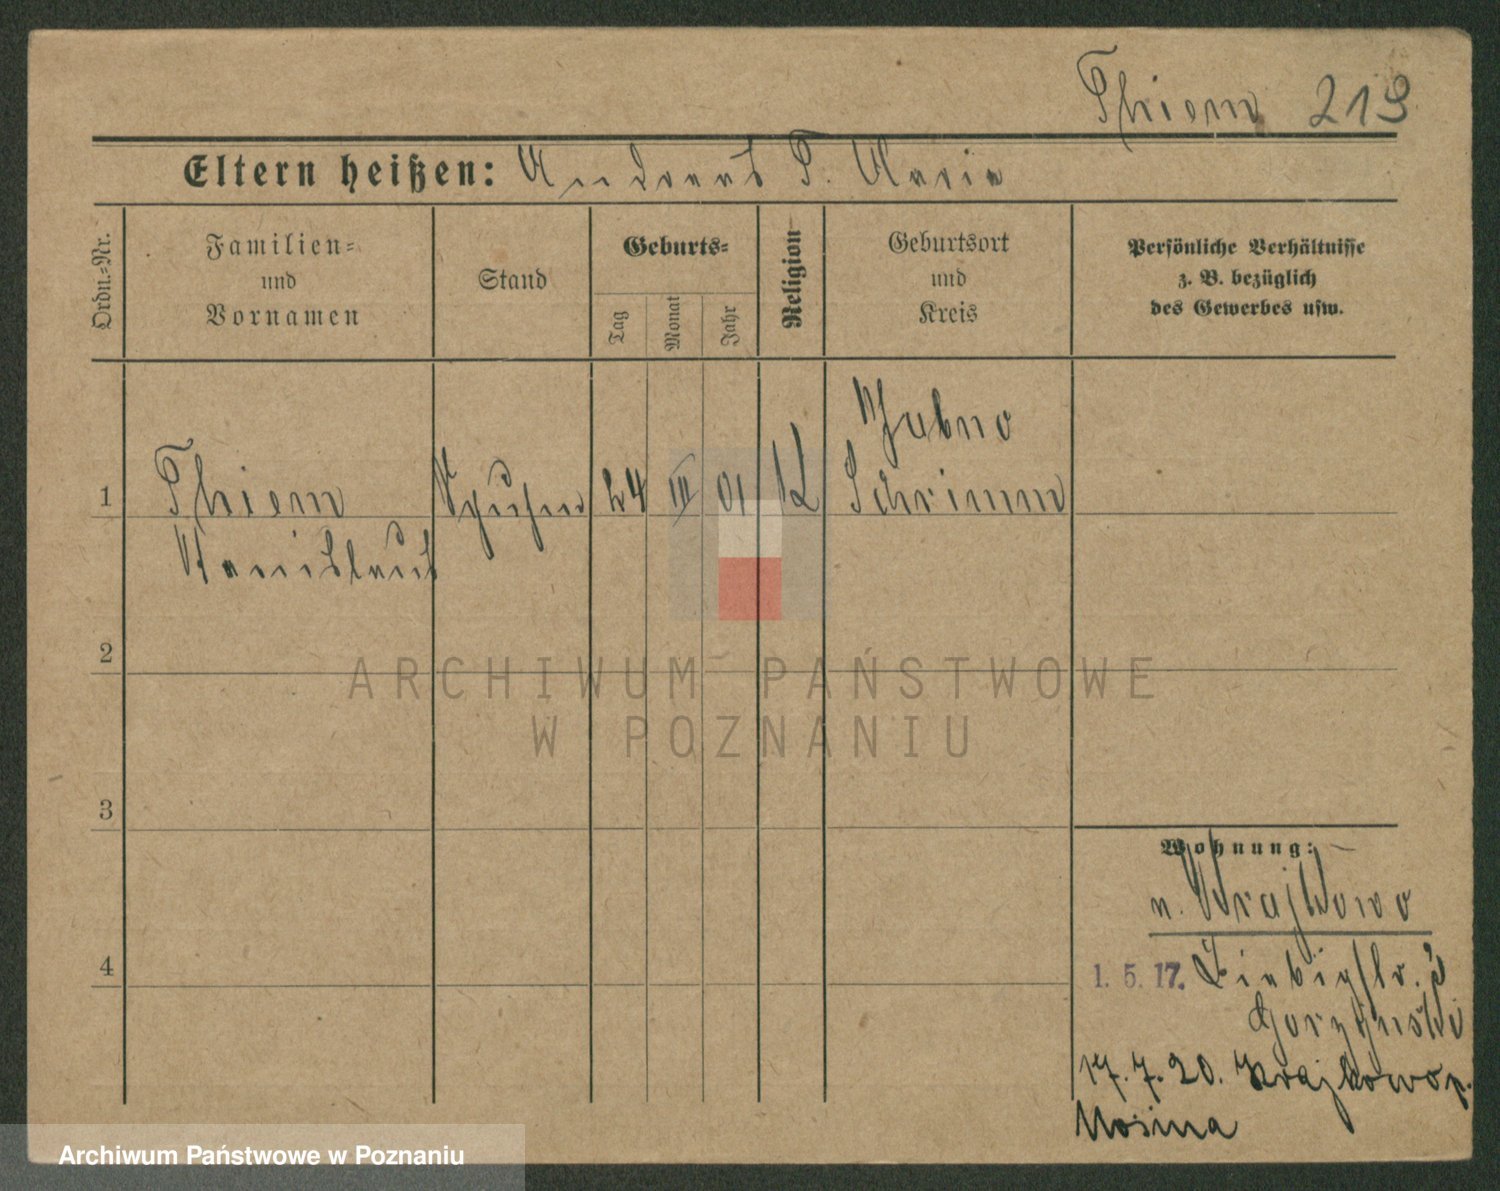 Thiem 213
Eltern heißen: Andreas T. Maria
Ordn.-Nr.
Familien-
und
Vornamen
Stand
Geburts-
Tag
Monat
Jahr
Religion
Geburtsort
und
Kreis
Persönliche Verhältnisse
z. B. bezüglich
des Gewerbes usw.
1
Thiem
Stanislaus
24 III 01 K
Schrimm
2
3
4
Wohnung:
n. Krajkowo
1. 5. 17. Liebigstr.
Gorzynski
17. 7. 20. Krajkowo p.
Mosina
ARCHIWUM PAŃSTWOWE
W POZNANIU
Archiwum Państwowe w Poznaniu